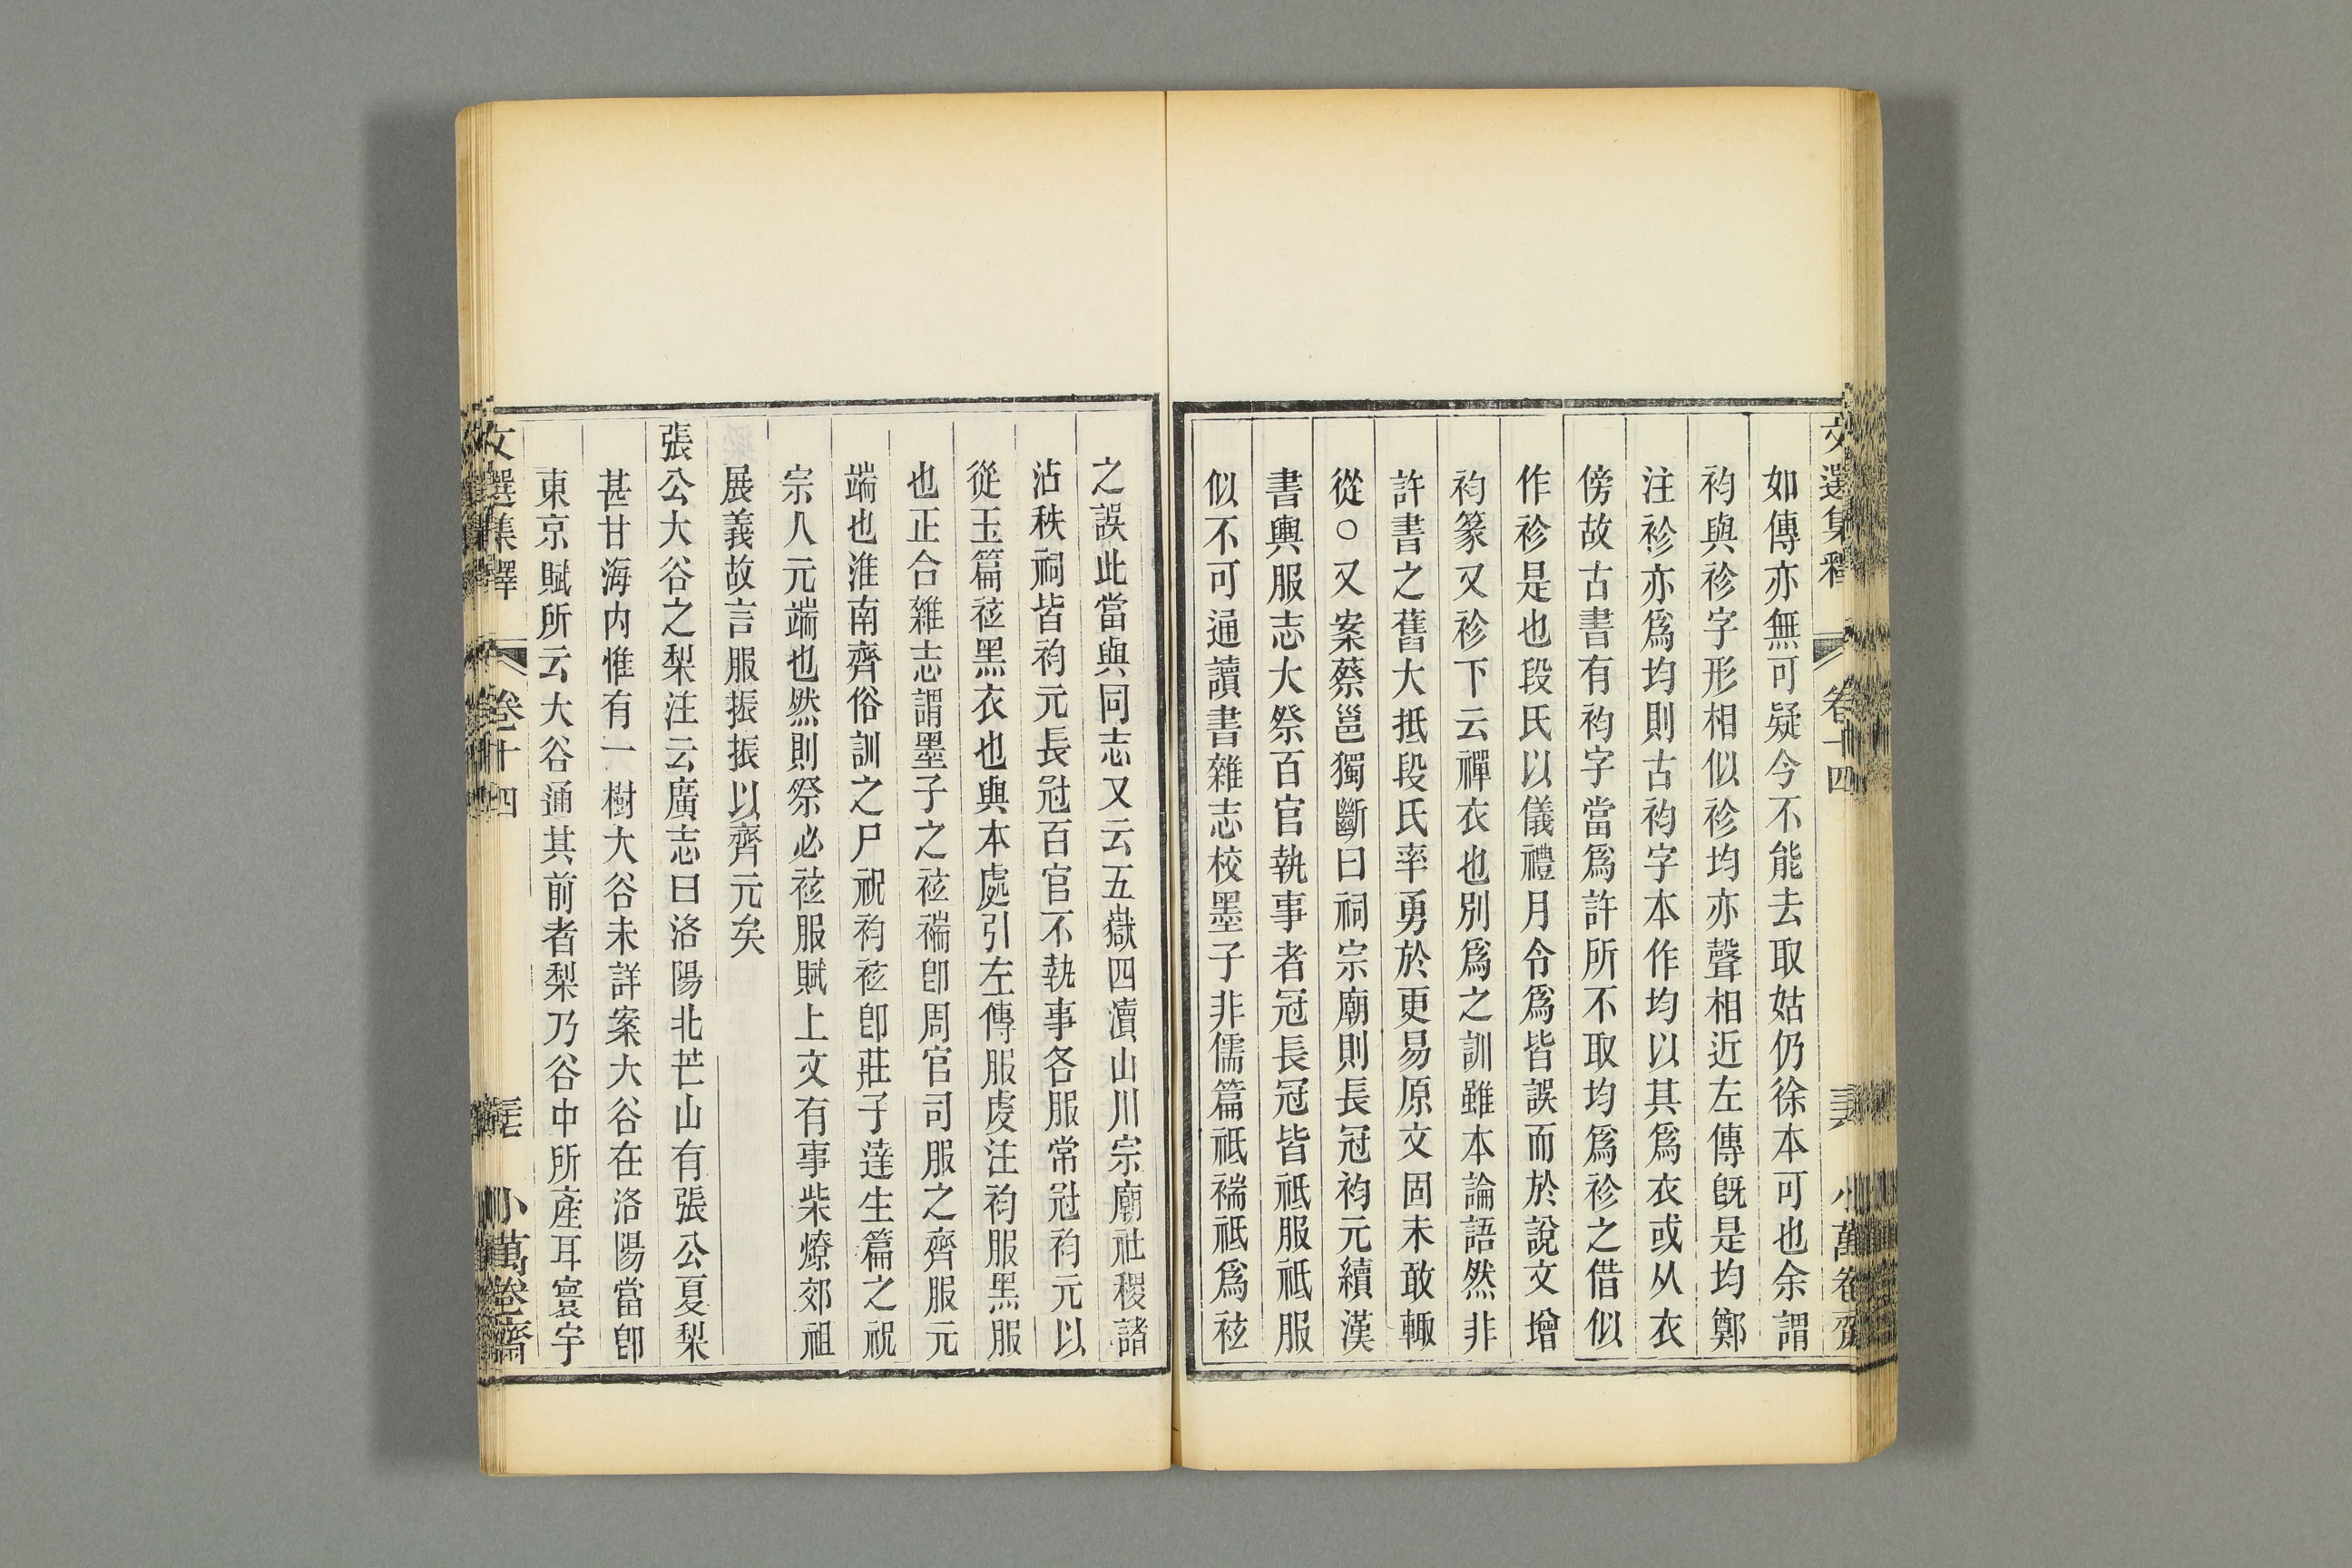 文選集釋 卷十四 小萬卷齋
如傳亦無可疑今不能去取姑仍徐本可也余謂
袀與袗字形相似袗均亦聲相近左傳旣是均鄭
注袗亦爲均則古袀字本作均以其爲衣或从衣
傍故古書有袀字當爲許所不取均爲袗之借似
作袗是也段氏以儀禮月令爲皆誤而於說文增
袀篆又袗下云襌衣也別爲之訓雖本論語然非
許書之舊大抵段氏率勇於更易原文固未敢輙
從○又案蔡邕獨斷曰祠宗廟則長冠袀元續漢
書輿服志大祭百官執事者冠長冠皆祗服祗服
似不可通讀書雜志校墨子非儒篇祗褍祗爲袨
之誤此當與同志又云五嶽四瀆山川宗廟社稷諸
沾秩祠皆袀元長冠百官不執事各服常冠袀元以
從玉篇袨黑衣也與本處引左傳服虔注袀服黑服
也正合雜志謂墨子之袨褍卽周官司服之齊服元
端也淮南齊俗訓之尸祝袀袨卽莊子達生篇之祝
宗人元端也然則祭必袨服賦上文有事柴燎郊祖
展義故言服振振以齊元矣
張公大谷之梨注云廣志曰洛陽北芒山有張公夏梨
甚甘海內惟有一樹大谷未詳案大谷在洛陽當卽
東京賦所云大谷通其前者梨乃谷中所產耳寰宇
文選集釋 卷十四 小萬卷齋